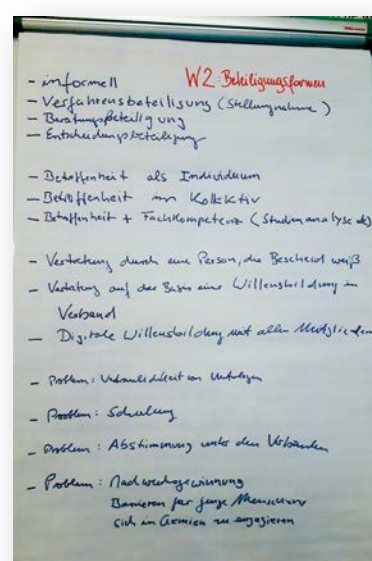 W2: Beteiligungsformen
- informell
- Verfahrensbeteiligung (Stellungnahme)
- Beratungsbeteiligung
- Entscheidungsbeteiligung
- Betroffenheit als Individuum
- Betroffenheit im Kollektiv
- Betroffenheit + Fachkompetenz (Studienanalyse etc)
- Vertretung durch eine Person, die Bescheid weiß
- Vertretung auf der Basis einer Willensbildung im
Verband
- Digitale Willensbildung mit allen Mitgliedern
- Problem: Vertraulichkeit von Unterlagen
- Problem: Schulung
- Problem: Abstimmung unter den Verbänden
- Problem: Nachwuchsgewinnung
Barrieren für junge Menschen
sich in Gremien zu engagieren